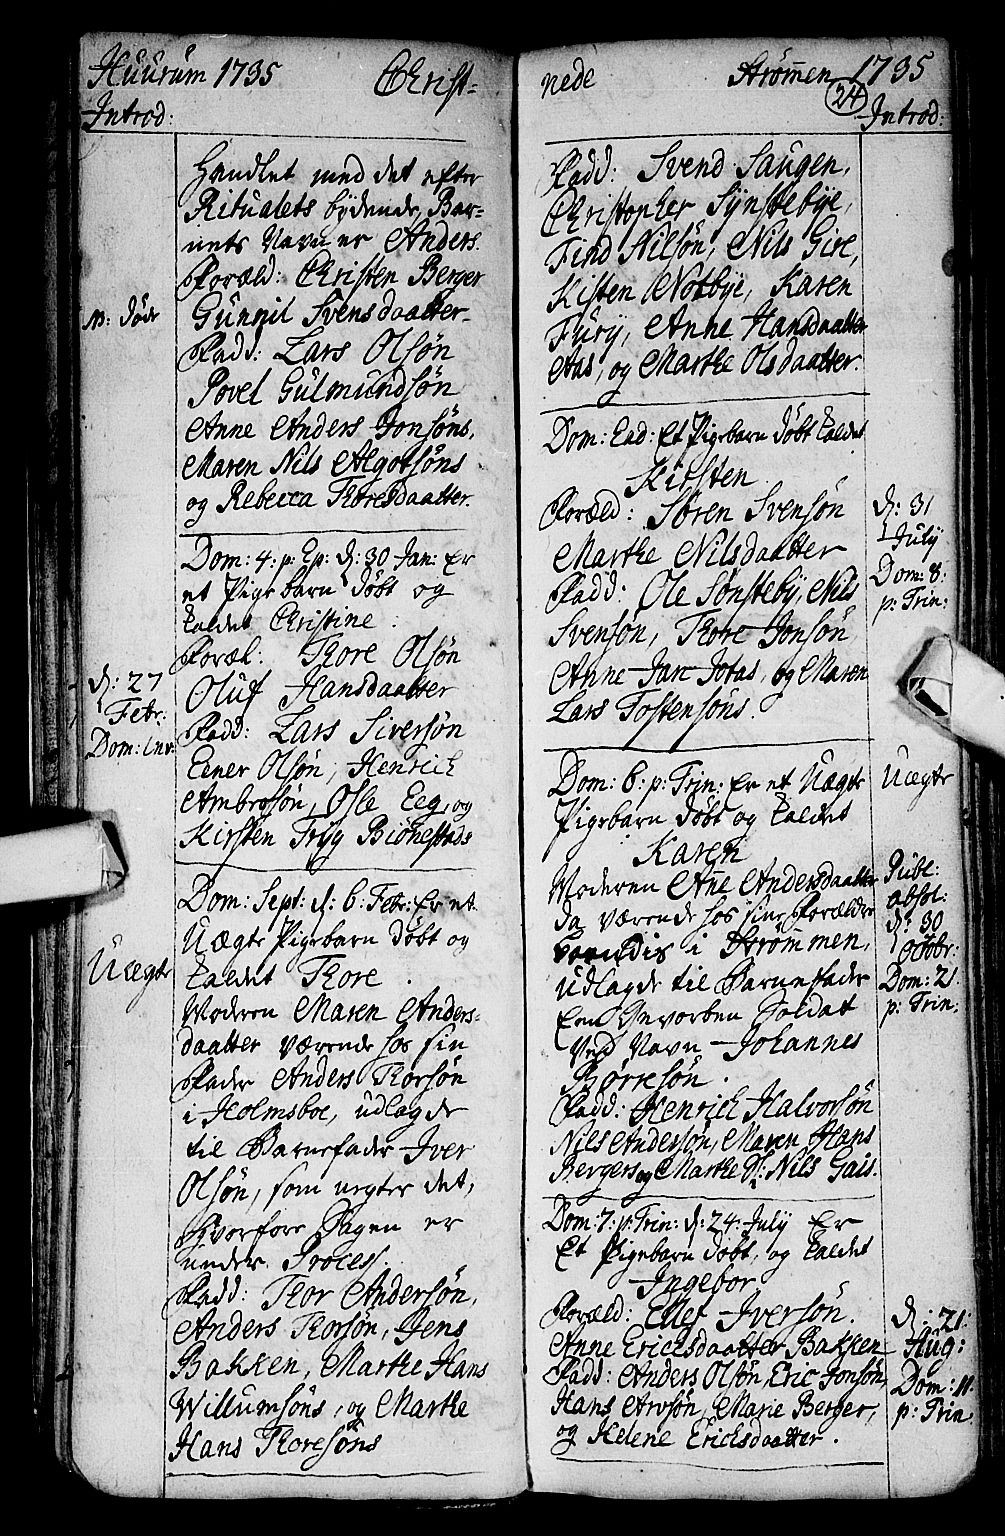 Huurum 1735 Christ-
Introd:
Handlet med det efter
Ritualets bydende, Bar-
nets Navn er Anders.
Foræld: Christen Berger
Gunnil Svensdaatter
N: Død
Fadd: Lars Olsøn
Povel Gulmundsøn
Anne Anders Jonsøns,
Maren Nils Algotsøns
og Rebecca Thoresdaatter.
Dom: 4. p: Ep: d: 30 Jan: Er
et Pigebarn døbt og
kaldet Christine.
Foræl: Thore Olsøn
Oluf Hansdaatter
d: 27
Febr:
Dom: inv:
Fadd: Lars Siversøn
Ener Olsøn, Henrich
Ambrosøn, Osle Eeg, og
Kirsten Tryg Biønestads
Dom: Sept: d: 6. Febr: Er et
Uægte Pigebarn døbt og
kaldet Thore.
Uægte
Moderen Maren Anders-
daatter værende hos sin
Fader Anders Thorsøn
i Holmsboe, udlagde
til Barnefader Iver
Olsøn, som negter det,
hvorfore Sagen er
under Proces.
Fadd: Thor Andersøn,
Anders Thorsøn, Jens
Bakken, Marthe Hans
Willumsøns, og Marthe
Hans Thoresøns
nede Strømmen 1735
24
Introd:
Fadd: Svend Saugen,
Christopher Synstebye,
Find Nilsøn, Nils Gire,
Kisten Notbye, Karen
Fury, Anne Hansdaatter
Aas, og Marthe Olsdaatter.
Dom: Ead: Et Pigebarn døbt kaldet
Kirsten
Foræld: Søren Svensøn
Marthe Nilsdaatter
d: 31
July
Dom: 8.
p: Trin:
Fadd: Ole Sønsteby, Nils
Svensøn, Thore Jonsøn
Anne Jan Jotas, og Maren
Lars Tostensøns.
Dom: 6. p: Trin: Er et Uægte
Pigebarn døbt og kaldet
Karen
Uægte
Moderen Anne Andersdaatter
da værende hos sine Forældre
i Strømmen,
udlagde til Barnefader
Een Gevorben Soldat
Ved Navn Johannes
Børresøn.
Publ:
absol:
d: 30
Octobr:
Dom: 21
p: Trin:
Fadd: Henrich Halvorsøn
Nils Andersøn, Maren Hans
Bergers og Marthe Nils Gais.
Dom: 7. p: Trin: d: 24. July Er
Et Pigebarn døbt, og kaldet
Ingebor
Foræld: Ellef Iversøn.
Anne Ericksdaatter Bakken
Fadd: Anders Olsøn, Eric Jonsøn,
Hans Arvsøn, Marie Berger,
og Helene Ericksdaatter.
d: 21.
Aug:
Dom: 11.
p: Trin